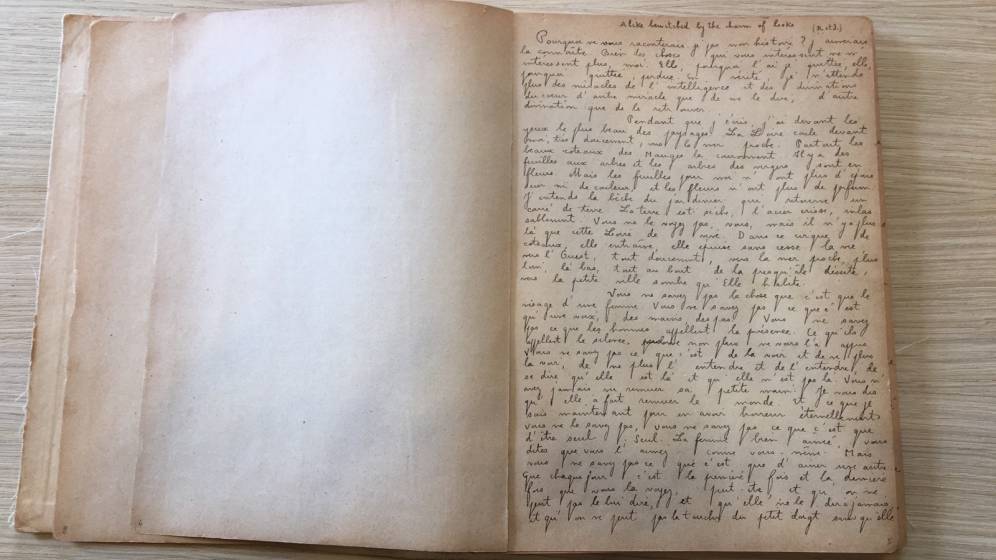 Alike bewitched by the charm of looks (R. et J.)
Pourquoi ne vous raconterais-je pas mon histoire ? J'aimerais
la connaître. Bien les choses qui vous intéressent ne m'
intéressent plus, moi. Elle, puisque l'ai-je quittée, elle,
jamais quittée, perdue. En vérité, je n'attends
plus des miracles de l'intelligence et des divinations
du cœur d'autre miracle que de me le dire, d'autre
divination que de la retrouver.
Pendant que j'écris, j'ai devant les
yeux le plus beau des paysages. La Loire coule devant
moi, très doucement, vers la mer proche. Partout, les
beaux coteaux des Mauges la couronnent. Il y a des
feuilles aux arbres et les arbres des vergers sont en
fleurs. Mais les feuilles pour moi n'ont plus d'
ni de couleur, et les fleurs n'ont plus de parfum.
J'entends la bêche du jardinier qui retourne un
carré de terre. La terre est sèche, l'acier crisse, inlas
sablement. Vous ne le voyez pas, vous, mais il n'y a plus
là que cette Loire de rêve. Dans ce cirque de
coteaux, elle entraîne, elle épuise sans cesse la vie
vers l'Ouest, tout doucement, vers la mer proche, plus
loin, là-bas, tout au bout de la presqu'île déserte,
vers la petite ville sombre qu'Elle habite.
Vous ne savez pas la chose que c'est que le
visage d'une femme. Vous ne savez pas ce que c'est
qu'une voix, des mains, des pas. Vous ne savez
pas ce que les hommes appellent la présence. Ce qu'ils
appellent le silence, personne non plus ne vous l'a appris.
Vous ne savez pas ce que c'est de la voir et de ne plus
la voir, de ne plus l'entendre et de l'entendre, de
se dire qu'elle est là et qu'elle n'est pas là. Vous n'
avez jamais vu remuer sa petite main. Je vous dis
qu'elle a fait remuer le monde. Et ce que je
sais maintenant pour en avoir horreur éternellement
vous ne le savez pas, vous ne savez pas ce que c'est que
d'être seul. Seul. La femme bien aimée, vous
dites que vous l'aimez comme vous-même. Mais
vous ne savez pas ce que c'est que d'aimer une autre
Que chaque jour c'est la première fois et la dernière
fois que vous la voyez peut-être et qu'on ne
peut pas le lui dire, et qu'elle ne le dira jamais,
Et qu'on ne peut pas la toucher du petit doigt sans qu'elle